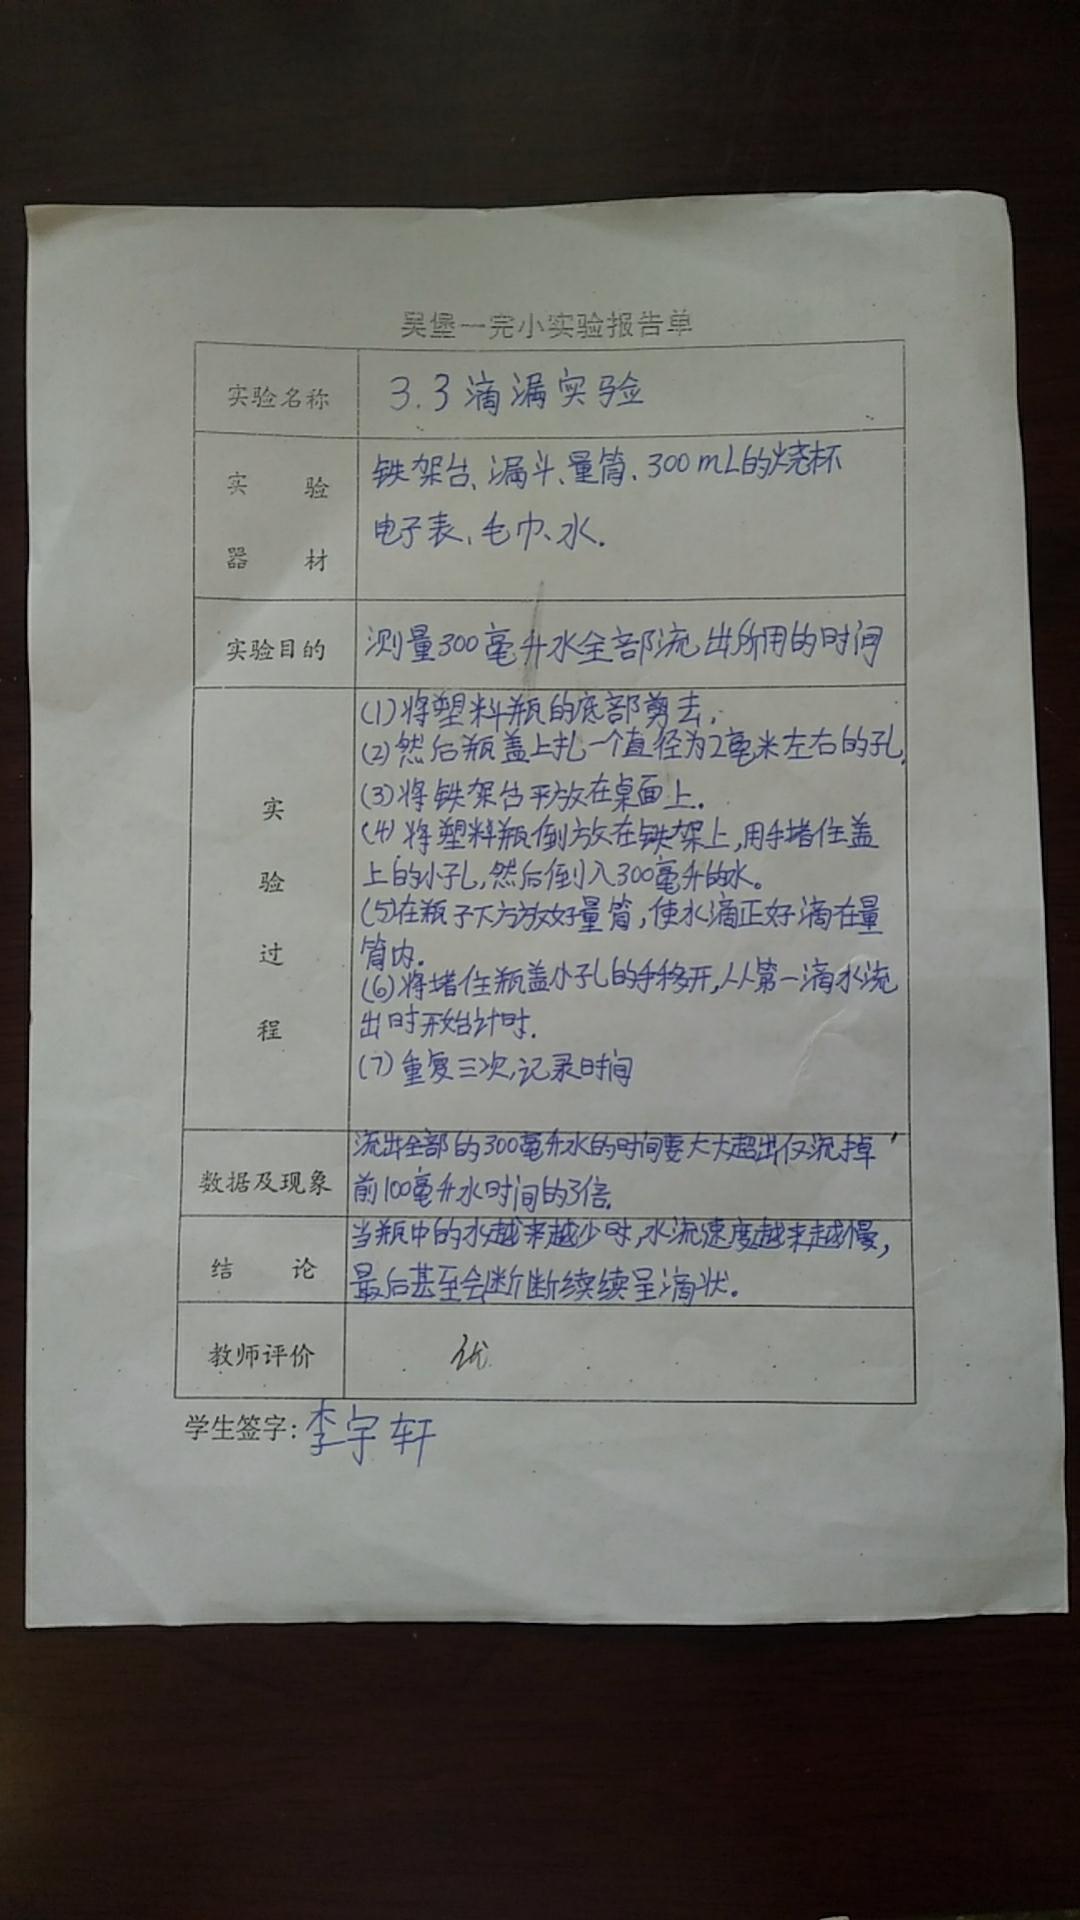 吴堡一完小实验报告单
实验名称
3.3滴漏实验
实 验
器 材
铁架台、漏斗、量筒、300mL的烧杯
电子表、毛巾、水.
实验目的
测量300毫升水全部流出所用的时间
实
验
过
程
(1)将塑料瓶的底部剪去.
(2)然后瓶盖上扎一个直径为2毫米左右的孔.
(3)将铁架台平放在桌面上.
(4)将塑料瓶倒放在铁架上,用手堵住盖
上的小孔,然后倒入300毫升的水。
(5)在瓶子下方放好量筒,使水滴正好滴在量
筒内.
(6)将堵住瓶盖小孔的手移开,从第一滴水流
出时开始计时.
(7)重复三次,记录时间
数据及现象
流出全部的300毫升水的时间要大大超出仅流掉
前100毫升水时间的3倍.
结 论
当瓶中的水越来越少时,水流速度越来越慢,
最后甚至会断断续续呈滴状.
教师评价
优
学生签字:李宇轩